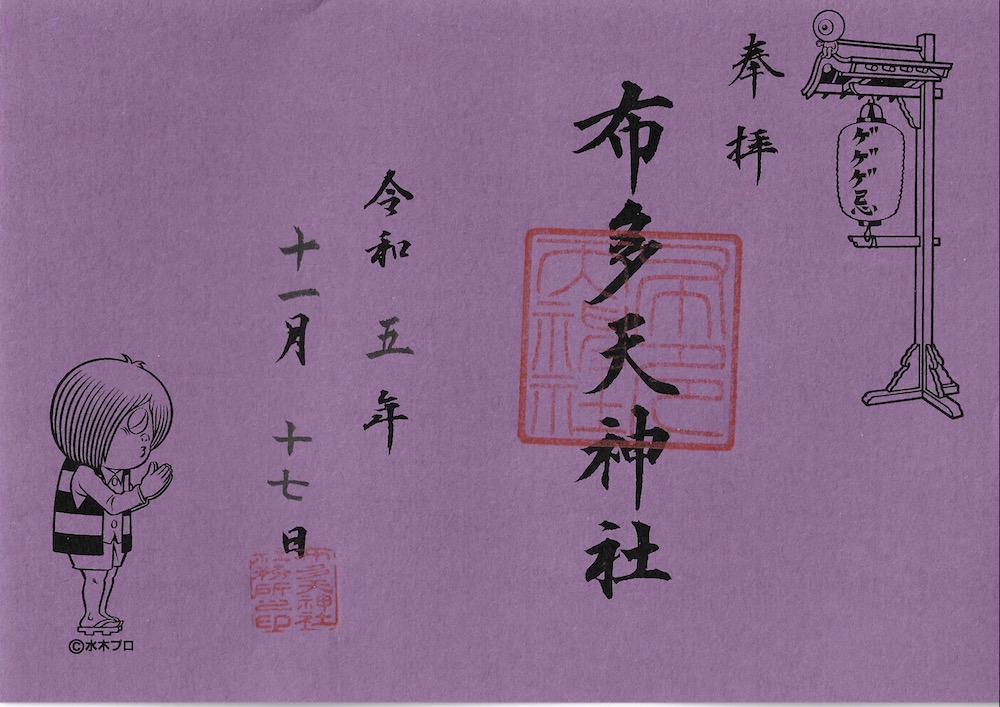 奉拝
布多天神社
令和五年
十一月十七日
ゲゲゲ忌
布多天神社
務所之印
©水木プロ